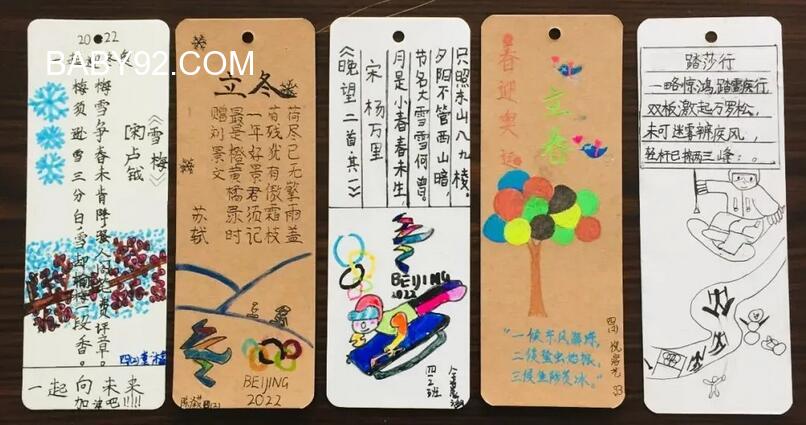 BABY92.COM
2022
《雪梅》
[宋]卢钺
梅雪争春未肯降,骚人阁笔费评章。
梅须逊雪三分白,雪却输梅一段香。
四(2)
一起向未来
加油吧!!!!
立冬
荷尽已无擎雨盖
菊残犹有傲霜枝
一年好景君须记
最是橙黄橘绿时
赠刘景文
苏轼
BEIJING
2022
四(2)
《晚望二首其一》
宋 杨万里
月是小春春未生,
节名大雪雪何曾。
夕阳不管西山暗,
只照东山八九棱。
BEIJING
2022
四2班
春迎奥运
立春
"一候东风解冻,
二候蛰虫始振,
三候鱼陟负冰。"
四(2)
33
踏莎行
一略惊鸿,踏雪疾行
双板激起万岁松,
未可迷雾 疾风,
轻杆已 两三峰。